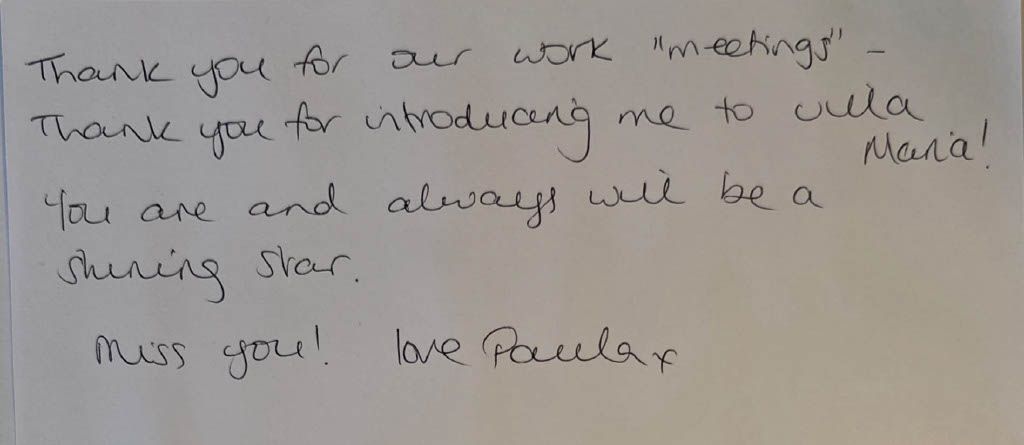 Thank you for our work "meetings" -
Thank you for introducing me to villa
Maria!
You are and always will be a
shining star.
Miss you! love Paula x